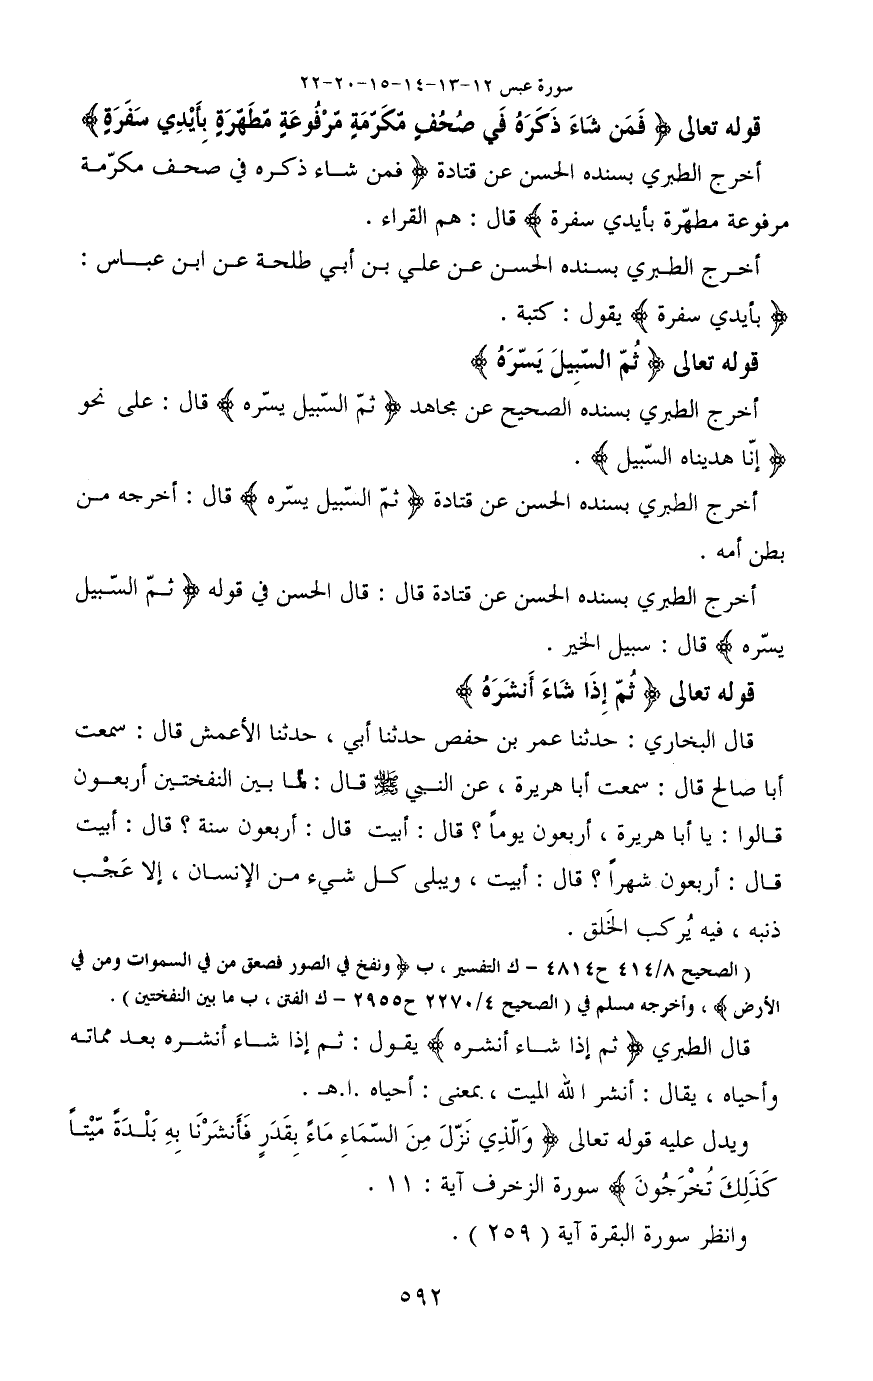 سورة عبس ١٢-١٣-١٤-١٥-٢٠-٢٢
قوله تعالى ﴿ فَمَن شَاءَ ذَكَرَهُ فَي صُحُفٍ مّكَرّمَةٍ مّرْفُوعَةٍ مّطَهّرَةٍ بِأَيْدِي سَفَرَةٍ ﴾
أخرج الطبري بسنده الحسن عن قتادة ﴿ فمن شاء ذكره في صحف مكرّمة
مرفوعة مطهّرة بأيدي سفرة ﴾ قال : هم القراء .
أخرج الطبري بسنده الحسن عن علي بن أبي طلحة عن ابن عباس :
﴿ بأيدي سفرة ﴾ يقول : كتبة .
قوله تعالى ﴿ ثُمّ السّبِيلَ يَسّرَهُ ﴾
أخرج الطبري بسنده الصحيح عن مجاهد ﴿ ثمّ السّبيل يسّره ﴾ قال : على نحو
﴿ إنّا هديناه السّبيل ﴾ .
أخرج الطبري بسنده الحسن عن قتادة ﴿ ثمّ السّبيل يسّره ﴾ قال : أخرجه من
بطن أمه .
أخرج الطبري بسنده الحسن عن قتادة قال : قال الحسن في قوله ﴿ ثمّ السّبيل
يسّره ﴾ قال : سبيل الخير .
قوله تعالى ﴿ ثُمّ إِذَا شَاءَ أَنشَرَهُ ﴾
قال البخاري : حدثنا عمر بن حفص حدثنا أبي ، حدثنا الأعمش قال : سمعت
أبا صالح قال : سمعت أبا هريرة ، عن النبي ﷺ قال : لما بين النفختين أربعون
قالوا : يا أبا هريرة ، أربعون يوماً ؟ قال : أبيت قال : أربعون سنة ؟ قال : أبيت
قال : أربعون شهراً ؟ قال : أبيت ، ويبلى كل شيء من الإنسان ، إلا عَجْب
ذنبه ، فيه يُركب الخَلق .
( الصحيح ٤١٤/٨ ح٤٨١٤ - ك التفسير ، ب ﴿ ونفخ في الصور فصعق من في السموات ومن في
الأرض ﴾ ، وأخرجه مسلم في ( الصحيح ٢٢٧٠/٤ ح٢٩٥٥ - ك الفتن ، ب ما بين النفختين ) .
قال الطبري ﴿ ثم إذا شاء أنشره ﴾ يقول : ثم إذا شاء أنشره بعد مماته
وأحياه ، يقال : أنشر الله الميت ، بمعنى : أحياه .ا.هـ .
ويدل عليه قوله تعالى ﴿ وَالّذِي نَزّلَ مِنَ السّمَاءِ مَاءً بِقَدَرٍ فَأَنشَرْنَا بِهِ بَلْدَةً مّيْتاً
كَذَلِكَ تُخْرَجُونَ ﴾ سورة الزخرف آية : ١١ .
وانظر سورة البقرة آية ( ٢٥٩ ) .
٥٩٢